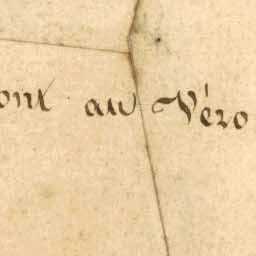 ont au Véro